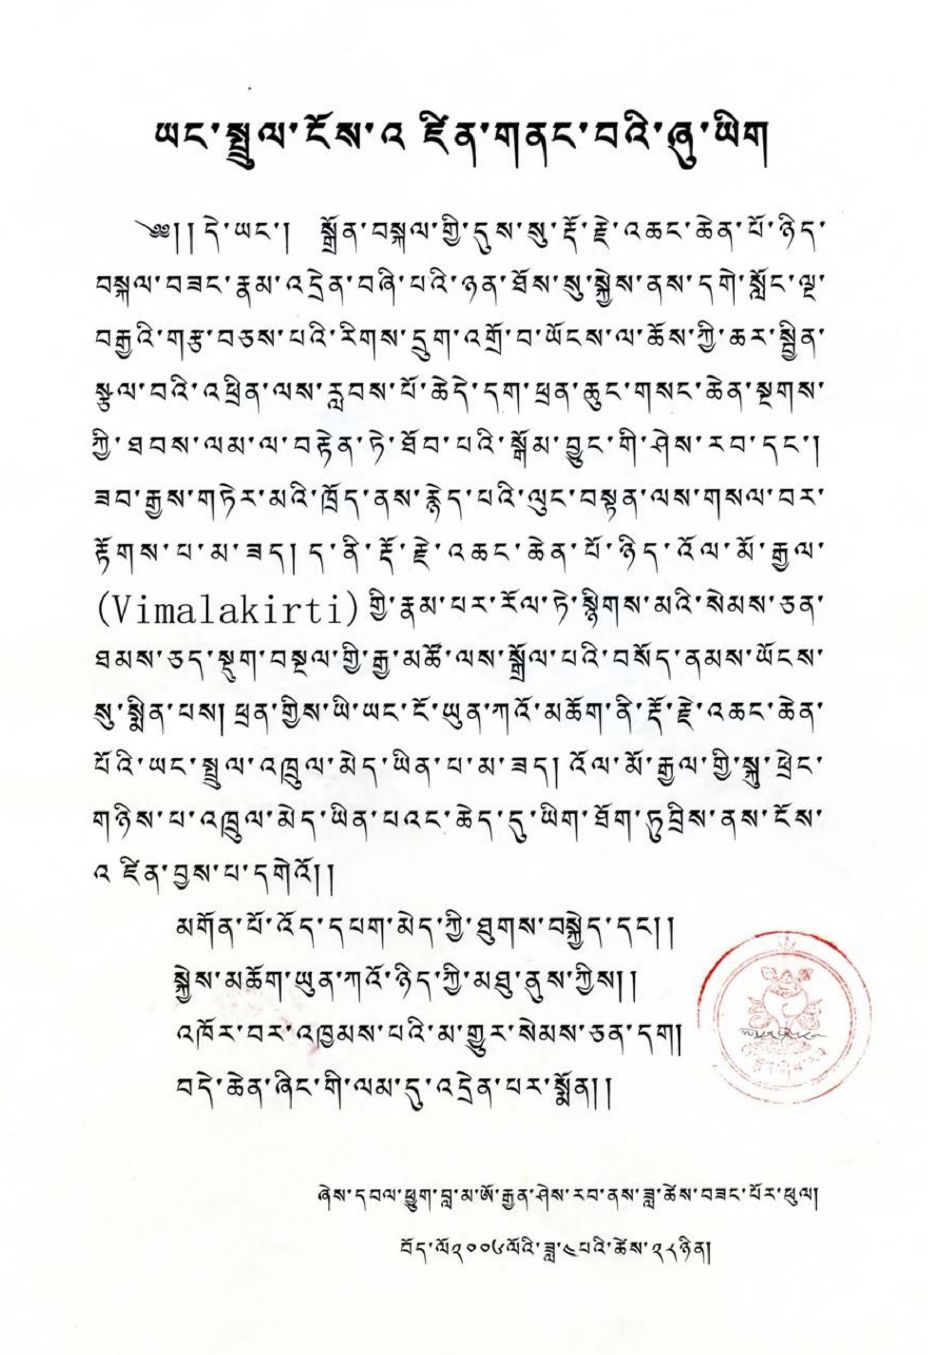 ཡང་སྤྲུལ་ངོས་འ ཛིན་གནང་བའི་ཞུ་ཡིག
༄༅།།དེ་ཡང་། སྒྲོན་བསྐལ་གྱི་དུས་སུ་རྡོ་རྗེ་འཆང་ཆེན་པོ་ཉིད་
བསྐལ་བཟང་རྣམ་འདྲེན་བཞི་པའི་ཉན་ཐོས་སུ་སྐྱེས་ནས་དགེ་སློང་ལྔ་
བརྒྱའི་གཙྩ་བཅས་པའི་རིགས་དྲུག་འགྲོ་བ་ཡོངས་ལ་ཆོས་ཀྱི་ཆར་སྦྱིན་
སྩུལ་བའི་འཕྲིན་ལས་རླབས་པོ་ཆེདེ་དག་ཕྲན་ཆུང་གསང་ཆེན་སྔགས་
ཀྱི་ཐབས་ལམ་ལ་བརྟེན་ཏེ་ཐོབ་པའི་སྒོམ་བྱུང་གི་ཤེས་རབ་དང་།
ཟབ་རྒྱས་གཏེར་མའི་ཁྲོད་ནས་རྙེད་པའི་ལུང་བསྟན་ལས་གསལ་བར་
རྟོགས་པ་མ་ཟད། ད་ནི་རྡོ་རྗེ་འཆང་ཆེན་པོ་ཉིད་འོལ་མོ་རྒྱལ་
(Vimalakirti)གྱི་རྣམ་པར་རོལ་ཏེ་སྙིགས་མའི་སེམས་ཅན་
ཐམས་ཅད་སྡུག་བསྔལ་གྱི་རྒྱ་མཚོ་ལས་སྒྲོལ་པའི་བསོད་ནམས་ཡོངས་
སུ་སྨིན་པས། ཕྲན་གྱིས་ཡི་ཡང་ངོ་ཡུན་ཀའོ་མཆོག་ནི་རྡོ་རྗེ་འཆང་ཆེན་
པོའི་ཡང་སྤྲུལ་འཁྲུལ་མེད་ཡིན་པ་མ་ཟད། འོལ་མོ་རྒྱལ་གྱི་སྐུ་ཕྲེང་
གཉིས་པ་འཁྲུལ་མེད་ཡིན་པའང་ཆེད་དུ་ཡིག་ཐོག་ཏུ་བྲིས་ནས་ངོས་
འ ཛིན་བྱས་པ་དགེའོ།།
མགོན་པོ་འོད་དཔག་མེད་ཀྱི་ཐུགས་བསྐྱེད་དང་།།
སྐྱེས་མཆོག་ཡུན་ཀའོ་ཉིད་ཀྱི་མཐུ་ནུས་ཀྱིས།།
འཁོར་བར་འཁྱམས་པའི་མ་གྱུར་སེམས་ཅན་དག།
བདེ་ཆེན་ཞིང་གི་ལམ་དུ་འདྲེན་པར་སྨོན།།
ཞེས་དཔལ་ཕྱུག་བླ་མ་ཨོ་རྒྱན་ཤེས་རབ་ནས་ཟླ་ཚེས་བཟང་པོར་ཕུལ།
བོད་ལོ༢༠༠༦ལོའི་ཟླ་༤པའི་ཚེས་༢༨ཉིན།